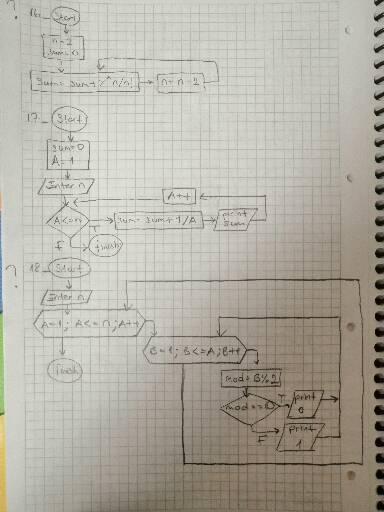 ?
Start
n=2
sum=0
n= n-1
17.
Start
sum=0
A=1
Enter n
A++
A<=n
T
sum= sum+1/A
print
sum
F
finish
?
18.
Start
Enter n
A=1; A<=n; A++
B=1; B<=A; B++
finish
mod=B%2
mod==0
T
print
0
F
print
1